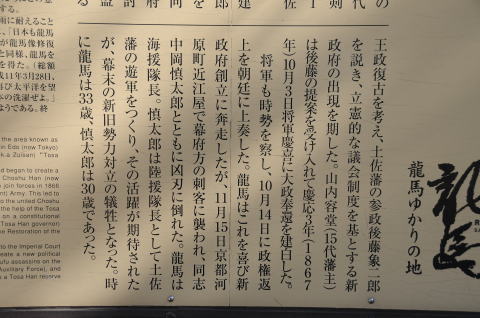 龍馬
龍馬ゆかりの地
王政復古を考え、土佐藩の参政後藤象二郎
を説き、立憲的な議会制度を基とする新
政府の出現を期した。山内容堂(15代藩主)
は後藤の提案を受け入れて慶応3年(1867
年)10月3日将軍慶喜に大政奉還を建白した。
将軍も時勢を察し、10月14日に政権返
上を朝廷に上奏した。龍馬はこれを喜び新
政府創立に奔走したが、11月15日京都河
原町近江屋で幕府方の刺客に襲われ、同志
中岡慎太郎とともに凶刃に倒れた。龍馬は
海援隊長。慎太郎は陸援隊長として土佐
藩の遊軍をつくり、その活躍が期待された
が、幕末の新旧勢力対立の犠牲となった。時
に龍馬は33歳、慎太郎は30歳であった。
雨に耐えること
、「日本も龍馬
が龍馬像修復
と同様、龍馬を
を得た。「総額
成11年3月28日、
再び太平洋を望
本の洗濯ぜよ。」
ようである。終
the area known as
in Edo (now Tokyo)
k.a Zuisan) "Tosa
d began to create a
Choshu Han (now
join forces in 1866
nt Army. This led to
the united Choshu
the help of the Tosa
on a constitutional
Tosa Han governor)
the Restoration of the
to the Imperial Court
create a new political
ufu assassins on the
Auxiliary Force), and
a Tosa Han reserve